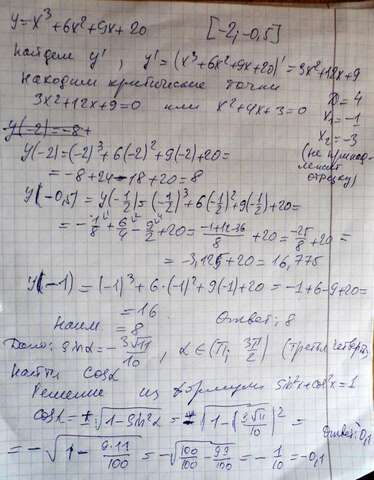 y=x³+6x²+9x+20 [-2;-0,5]
Найдем y', y'=(x³+6x²+9x+20)'=3x²+12x+9
Находим критические точки
3x²+12x+9=0 или x²+4x+3=0
D=4
x₁=-1
x₂=-3
(не принад-
лежит
отрезку)
y(-2)=-8+
y(-2)=(-2)³+6(-2)²+9(-2)+20=
=-8+24-18+20=8
y(-0,5)=y(-1/2)=(-1/2)³+6(-1/2)²+9(-1/2)+20=
=-1/8+6/4-9/2+20=(-1+12-36)/8+20=-25/8+20=
=-3,125+20=16,775
y(-1)=(-1)³+6·(-1)²+9(-1)+20=-1+6-9+20=
=16
Наим=8 Ответ: 8
Дано: sinα=-3√11/10, α∈(π; 3π/2) (третья четверть)
Найти cosα
Решение из формулы sin²α+cos²α=1
cosα=±√(1-sin²α)=-√(1-(3√11/10)²)=
=-√(1-9·11/100)=-√(100/100-99/100)=-1/10=-0,1
Ответ: -0,1